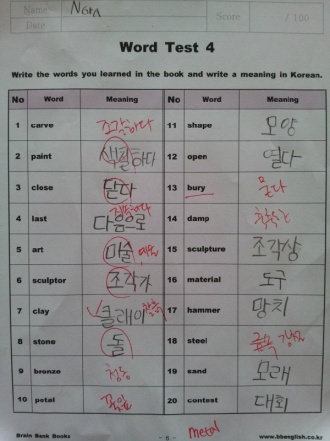 Name Nora
Score / 100
Date
Word Test 4
Write the words you learned in the book and write a meaning in Korean.
No Word Meaning No Word Meaning
1 carve 조각하다 11 shape 모양
2 paint 색칠하다 12 open 열다
3 close 닫다 13 bury 묻다
4 last 다음으로 지속하다 14 damp 축축한
5 art 미술 예술 15 sculpture 조각상
6 sculptor 조각가 16 material 도구
7 clay 클레이 찰흙 17 hammer 망치
8 stone 돌 18 steel 강철
9 bronze 청동 19 sand 모래
10 petal 꽃잎 20 contest 대회
metal
Brain Bank Books - 5 - www.bbenglish.co.kr